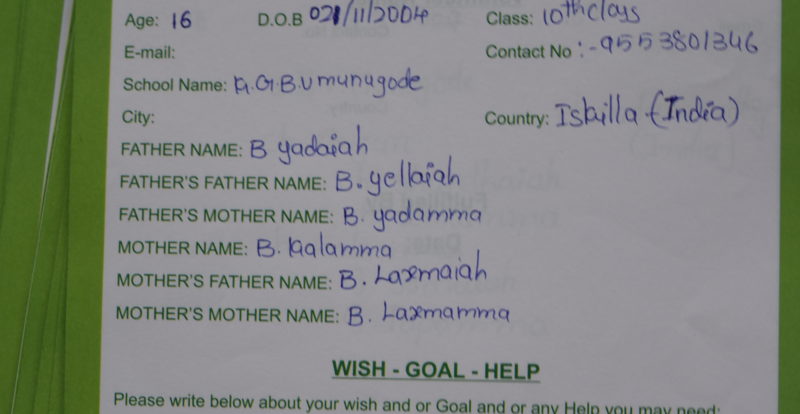 Age: 16 D.O.B 021/11/2004 Class: 10th class
E-mail: Contact No :-9553801346
School Name: K.G.B.V munugode
City: Country: Iskilla (India)
FATHER NAME: B yadaiah
FATHER'S FATHER NAME: B. yellaiah
FATHER'S MOTHER NAME: B. yadamma
MOTHER NAME: B. Kalamma
MOTHER'S FATHER NAME: B. Laxmaiah
MOTHER'S MOTHER NAME: B. Laxmamma
WISH - GOAL - HELP
Please write below about your wish and or Goal and or any Help you may need: